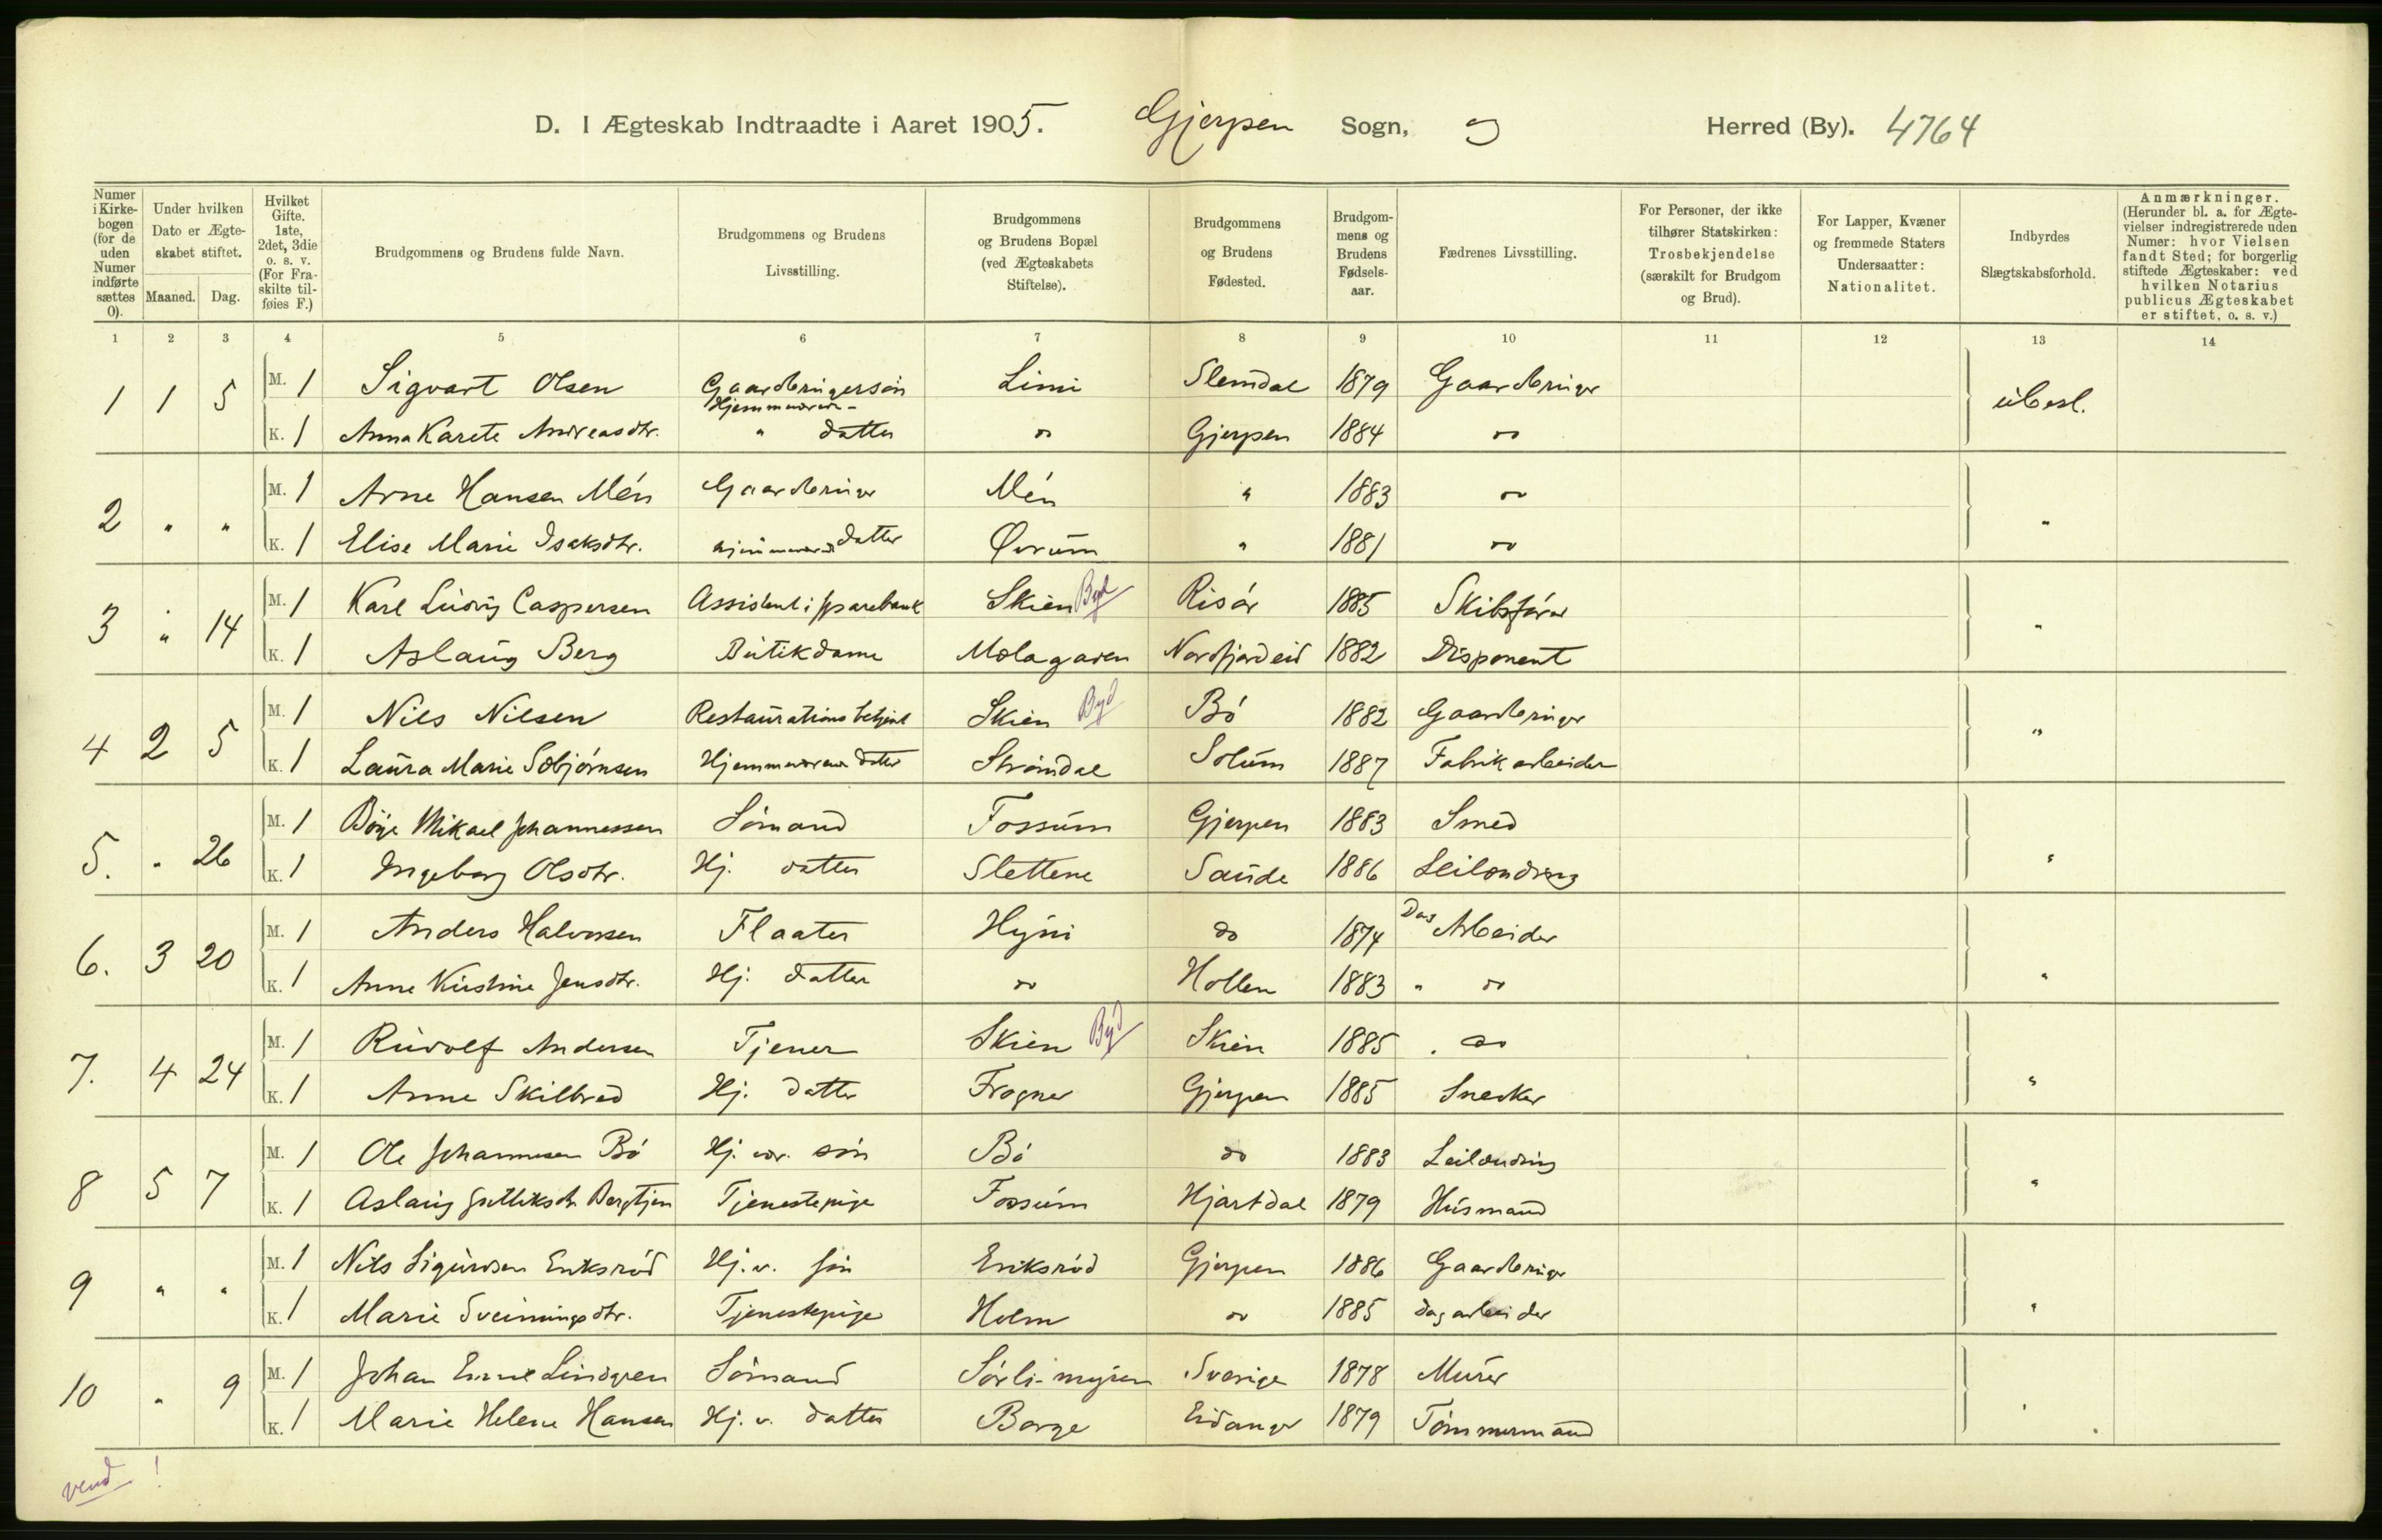 D. I Ægteskab Indtraadte i Aaret 1905. Gjerpen Sogn, Herred (By). 4764
Numer i Kirke-bogen (for de uden Numer indførte sættes 0). | Under hvilken Dato er Ægte-skabet stiftet. Maaned. Dag. | Hvilket Gifte. 1ste, 2det, 3die o. s. v. (For Fra-skilte til-føies F.) | Brudgommens og Brudens fulde Navn. | Brudgommens og Brudens Livsstilling. | Brudgommens og Brudens Bopæl (ved Ægteskabets Stiftelse). | Brudgommens og Brudens Fødested. | Brudgom-mens og Brudens Fødsels-aar. | Fædrenes Livsstilling. | For Personer, der ikke tilhører Statskirken: Trosbekjendelse (særskilt for Brudgom og Brud). | For Lapper, Kvæner og fremmede Staters Undersaatter: Nationalitet. | Indbyrdes Slægtskabsforhold. | Anmærkninger. (Herunder bl. a. for Ægte-vielser indregistrerede uden Numer: hvor Vielsen fandt Sted; for borgerlig stiftede Ægteskaber: ved hvilken Notarius publicus Ægteskabet er stiftet, o. s. v.)
1 2 3 4 5 6 7 8 9 10 11 12 13 14
1 1 5 M. 1 Sigvart Olsen Gaardbrugersøn Limi Slemdal 1879 Gaardbruger ubesl.
K. 1 Anna Karete Andreasdtr. Hjemmeværende " datter do Gjerpen 1884 do
2 " " M. 1 Arne Hansen Mén Gaardbruger Mén " 1883 do "
K. 1 Elise Marie Isaksdtr. hjemmeværende datter Øvrum " 1881 do
3 " 14 M. 1 Karl Ludvig Caspersen Assistent i sparebank Skien Byd Risör 1885 Skibsförer "
K. 1 Aslaug Berg Butikdame Mælagaren Nordfjordeid 1882 Disponent
4 2 5 M. 1 Nils Nilsen Restaurationsbetjent Skien Byd Bö 1882 Gaardbruger "
K. 1 Laura Marie Sæbjörnsen Hjemmeværende datter Strömdal Solum 1887 Fabrikarbeider
5. " 26 M. 1 Börje Mikael Johannessen Sömand Fossum Gjerpen 1883 Smed "
K. 1 Ingeborg Olsdtr. Hj. datter Slettene Saude 1886 Leilænding
6. 3 20 M. 1 Anders Halvorsen Flaater Hyni do 1874 Dag Arbeider "
K. 1 Anne Kirstine Jensdtr. Hj. datter do Hollen 1883 " do
7. 4 24 M. 1 Rudolf Andersen Tjener Skien Byd Skien 1885 " do "
K. 1 Anne Skilbred Hj. datter Frogner Gjerpen 1885 Snedker
8 5 7 M. 1 Ole Johannesen Bö Hj. vær. sön Bö do 1883 Leilænding "
K. 1 Aslaug Gjutliksdtr. Bergtjen Tjenestepige Fossum Hjartdal 1879 Husmand
9 " " M. 1 Nils Sigurdsen Eriksröd Hj. v. sön Eriksröd Gjerpen 1886 Gaardbruger "
K. 1 Marie Sveinungsdtr. Tjenestepige Holm do 1885 dagarbeider
10 " 9 M. 1 Johan Emil Lindgren Sömand Sörli-myren Sverige 1878 Murer "
K. 1 Marie Helene Hansen Hj. v. datter Borge Eidanger 1879 Tömmermand
vend!